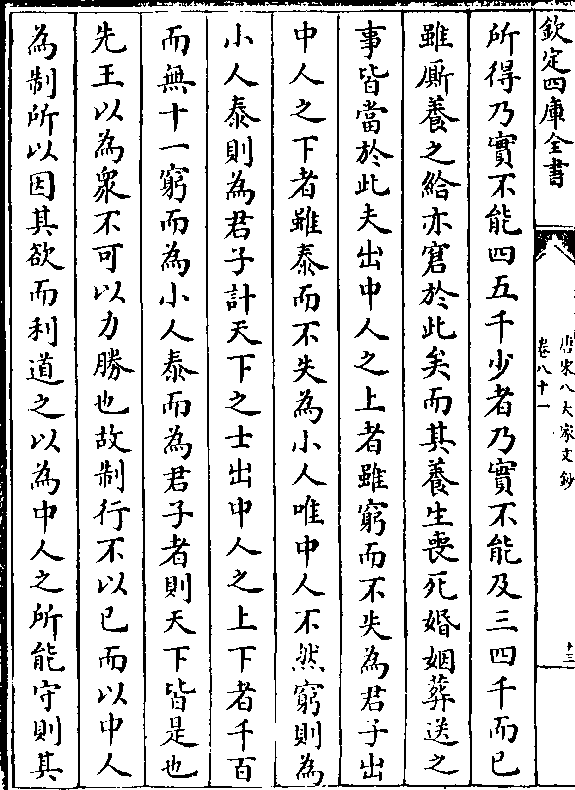 欽定四庫全書
唐宋八大家文鈔
卷八十一
十三
所得乃實不能四五千少者乃實不能及三四千而已
雖厮養之給亦窘於此矣而其養生喪死婚姻葬送之
事皆當於此夫出中人之上者雖窮而不失為君子出
中人之下者雖泰而不失為小人唯中人不然窮則為
小人泰則為君子計天下之士出中人之上下者千百
而無十一窮而為小人泰而為君子者則天下皆是也
先王以為衆不可以力勝也故制行不以已而以中人
為制所以因其欲而利道之以為中人之所能守則其